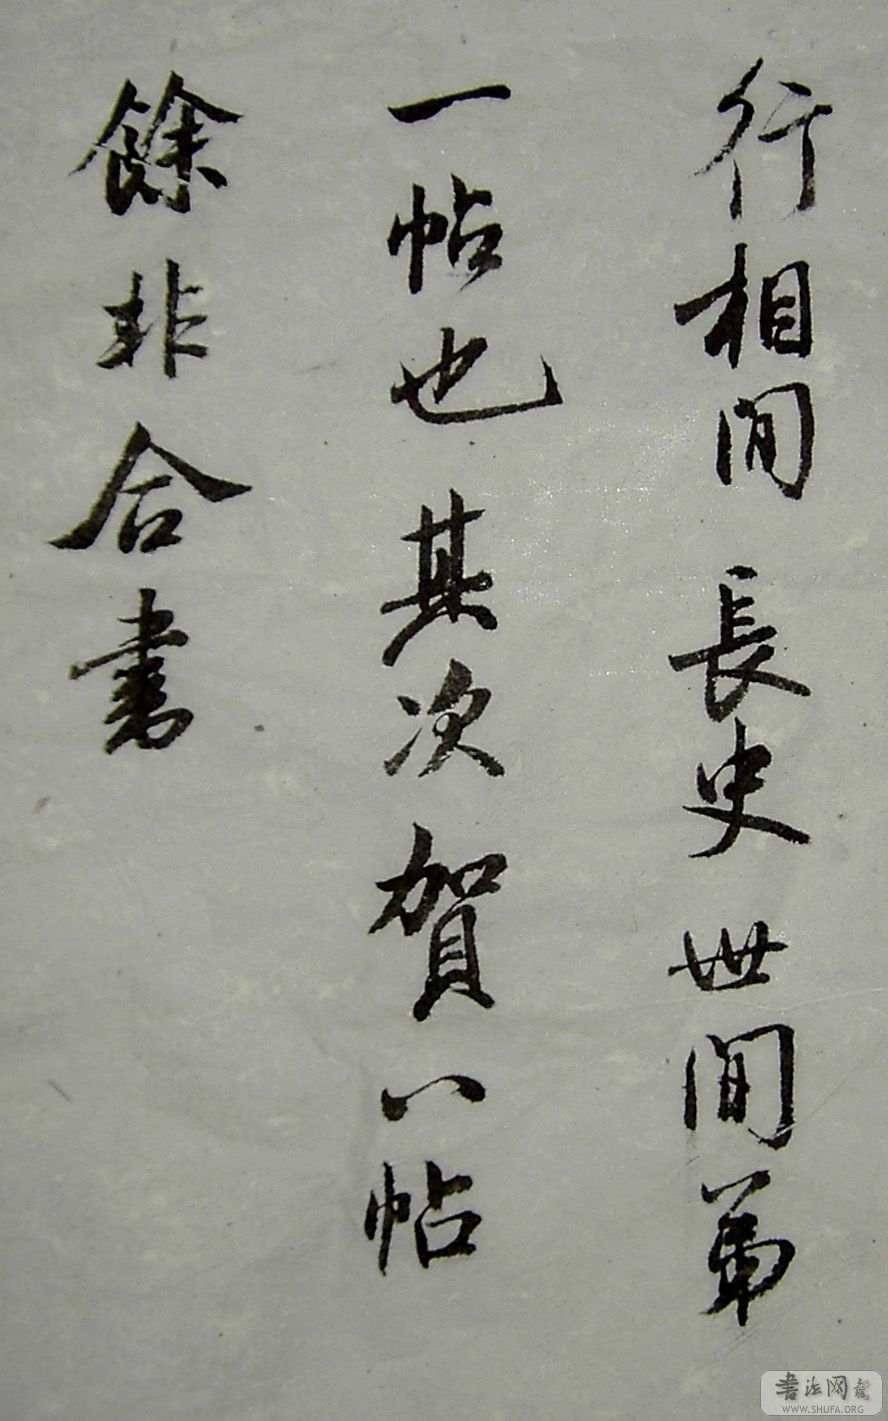 行相間長史世間第
一帖也其次賀八帖
餘非合書
書法网
WWW.SHUFA.ORG